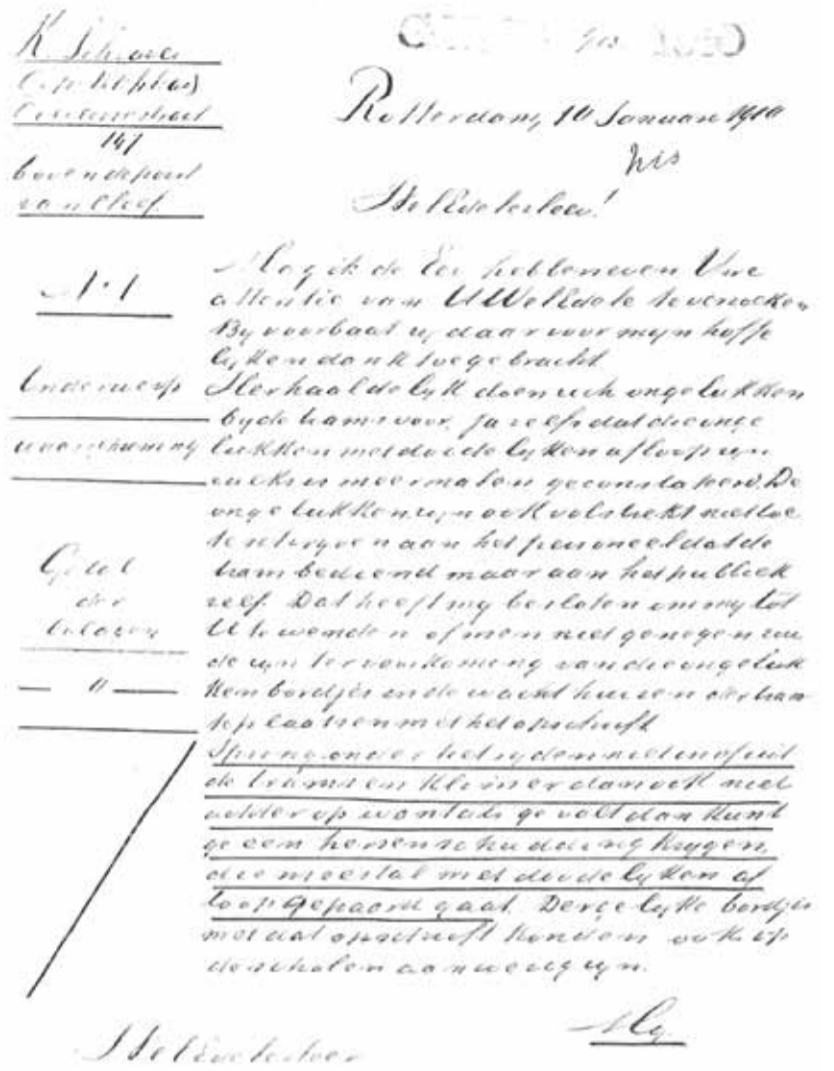 K
147
bovendepout
van Cleef.
Rotterdam, 10 Januari 1910
WelEdeleheer!
N. 1
Onderwerp
waarschuwing
Getal
der
bylagen
"
Mag ik de Eer hebben even Uwe
attentie van UWelEdele te verzoeken
By voorbaat zy daarvoor myn hoffe
lykendank toegebracht
Herhaaldelyk doen zich ongelukken
byde trams voor, ja zelfs dat die onge
lukken met doodelyken afloop zyn
zulks is meermalen geconstateerd. De
ongelukken zyn ook volstrekt niet toe
te schryven aan het personeel dat de
tram bediend maar aan het publiek
zelf. Dat heeft my besloten om my tot
U te wenden of men niet genegen zou
de zyn ter voorkoming van die ongeluk
ken bordjes in de wachthuizen der tram
te plaatsen met het opschrift
Spring onder het ryden niet in of uit
de trams en klim er dan ook niet
achter op want als ge valt dan kunt
ge een hersenschudding krygen,
die meestal met doodelyken af
loop gepaard gaat. Dergelyke bordjes
met dat opschrift konden ook op
de scholen aanwezig zyn.
WelEdeleheer